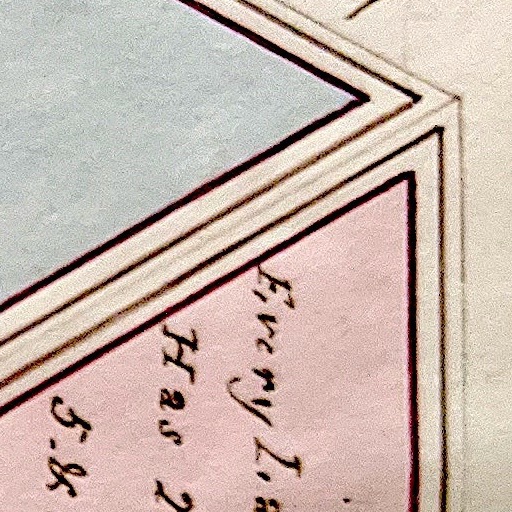 Every
Has 2
5. &